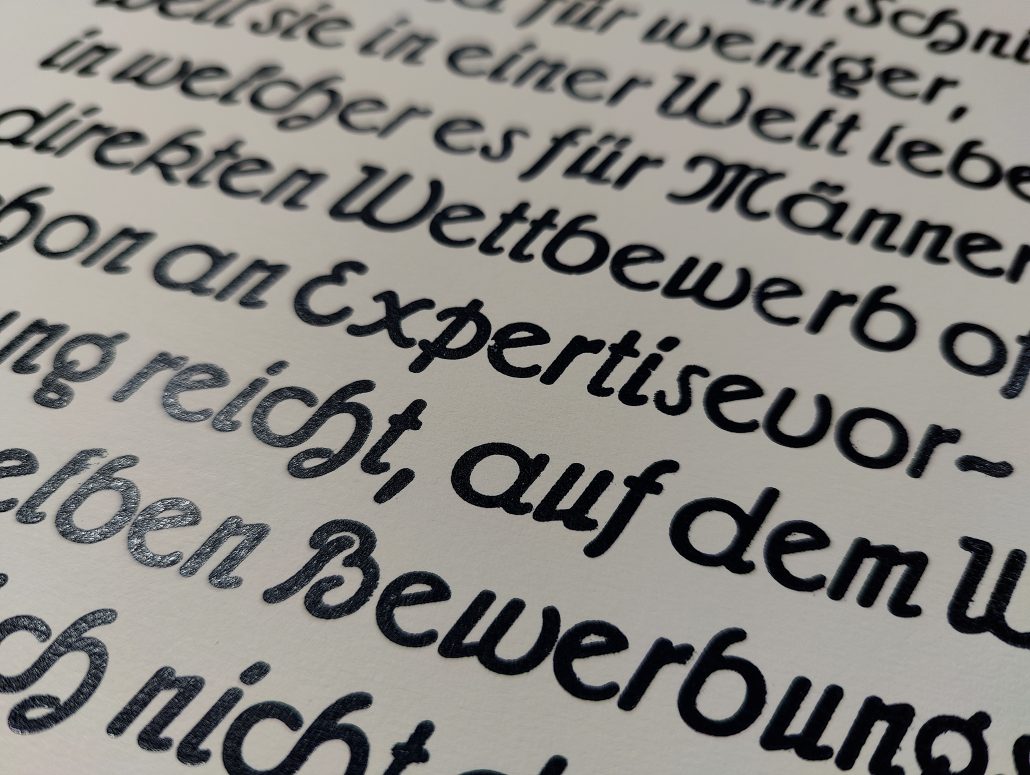 im Schni
für weniger,
weil sie in einer Welt lebe
in welcher es für Männer
direkten Wettbewerb of
chon an Expertisevor-
ung reicht, auf dem W
elben Bewerbungs
ich nicht